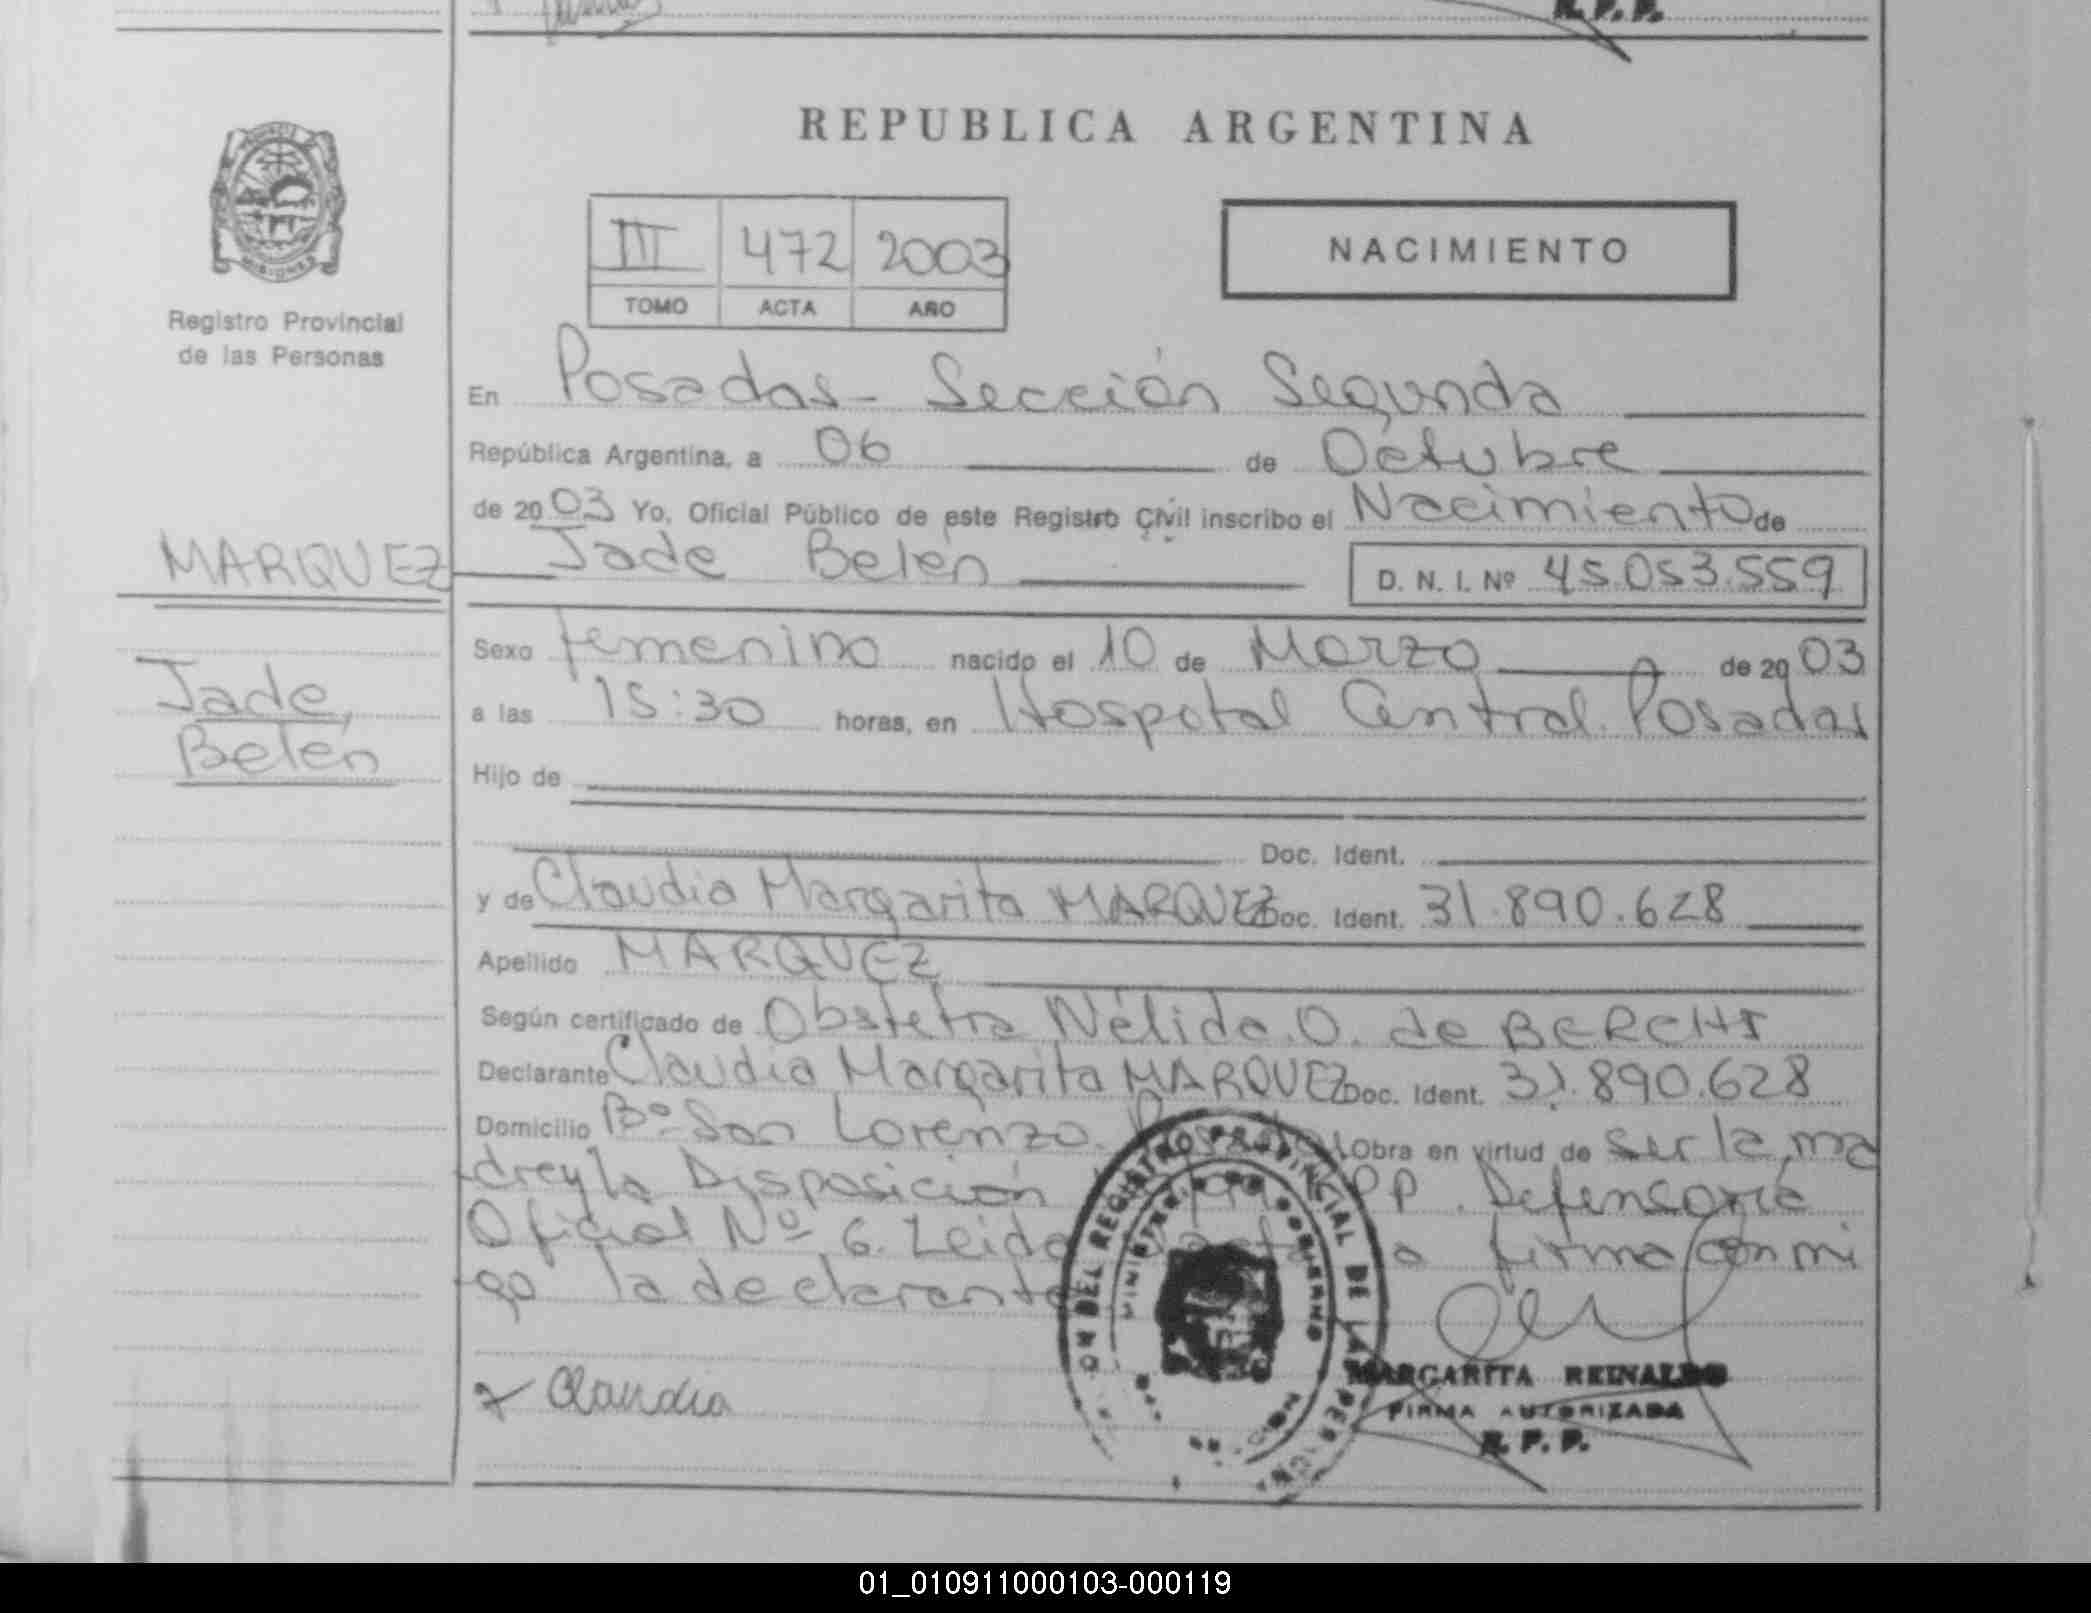 R. P. P.
REPUBLICA ARGENTINA
MISIONES
III 472 2003
TOMO ACTA AÑO
NACIMIENTO
Registro Provincial
de las Personas
En Posadas - Sección Segunda
República Argentina, a 06 de Octubre
de 2003 Yo, Oficial Público de este Registro Civil inscribo el Nacimiento de
MARQUEZ
Jade Belén D. N. I. Nº 45.053.559
Jade,
Belén
Sexo femenino nacido el 10 de Marzo de 2003
a las 15:30 horas, en Hospotal Central. Posadas
Hijo de
Doc. Ident.
y de Claudia Margarita MARQUEZ Doc. Ident. 31.890.628
Apellido MARQUEZ
Según certificado de Obstetra Nélida O. de BERCHT
Declarante Claudia Margarita MARQUEZ Doc. Ident. 31.890.628
Domicilio Bº San Lorenzo. Posadas Obra en virtud de ser la ma
drey la Disposición PP. Defensoría
Oficial Nº 6. Leida firma conmi
go la declarante
x Claudia
MARGARITA REINALDO
FIRMA AUTORIZADA
R. P. P.
01_010911000103-000119